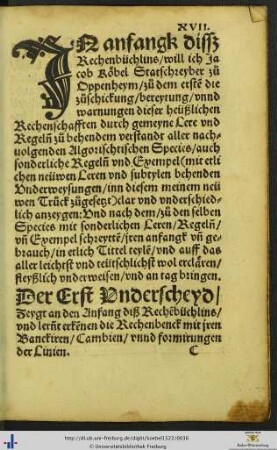 XVII.
IN anfangk disz
Rechenbüchlins/will ich Ja
cob Köbel Statschreyber zů
Oppenheym/zů dem erstē die
zůschickung/bereytung/vnnd
warnungen dieser heüszlichen
Rechenschafften durch gemeyne Lere vnd
Regeln̄ zů behendem verstandt aller nach-
uolgenden Algorischtischen Species/auch
sonderliche Regeln̄ vnd Exempel (mit etli
chen neüwen Leren vnd subtylen behenden
Vnderweysungen/inn diesem meinem neü
wen Trück zůgesetzt) clar vnd vnderschied-
lich anzeygen: Vnd nach dem/zů den selben
Species mit sonderlichen Leren/Regeln̄/
vn̄ Exempel schreyttē/jren anfangk vn̄ ge-
brauch/in etlich Tittel teylē/vnd auff das
aller leichtst vnd teütschlichst wol erclären/
fleyßlich vnderweisen/vnd an tag bringen.
Der Erst Vnderscheyd/
Zeygt an den Anfang diß Rechēbüchlins/
vnd lernt erkēnen die Rechenbenck mit jren
Banckiren/Cambien/vnnd formirungen
der Linien. C
http://dl.ub.uni-freiburg.de/diglit/koebel1522/0036
© Universitätsbibliothek Freiburg